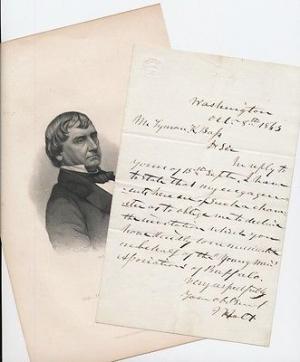 Washington
Oct. 8th 1863
Mr Lyman K Bass
Dr Sir
In reply to
yours of 15th Sept. I have
to state that my engagem
ents here are of such a char
acter as to oblige me to decline
the invitation which you
have kindly communicated
on behalf of the Young Mens
Association of Buffalo.
Very respectfully
Your obt Servt
J Holt